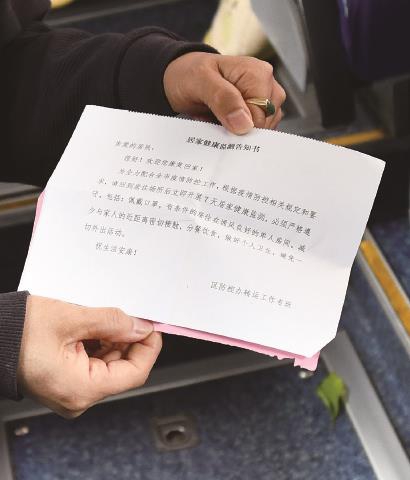 居家健康监测告知书
亲爱的居民:
您好!欢迎您康复回家!
为全力配合全市疫情防控工作,根据疫情防控相关规定和要
求,请您到居住场所后立即开展7天居家健康监测,必须严格遵
守,包括:佩戴口罩,有条件的居住在通风良好的单人房间,减
少与家人的近距离密切接触,分餐饮食,做好个人卫生,避免一
切外出活动。
祝生活安康!
区防控办转运工作专班